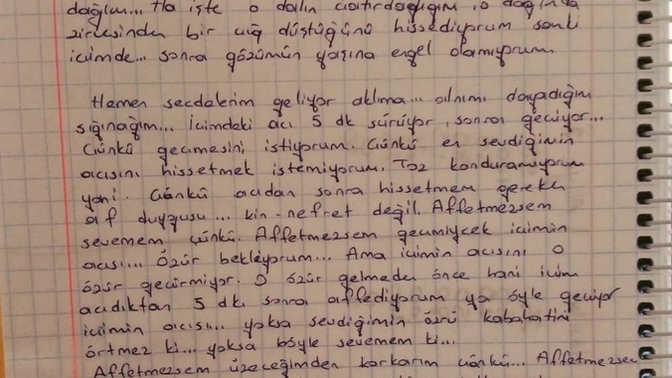 dağım... Ha işte o dalın çatırdadığını, o dağın da
zirvesinden bir çığ düştüğünü hissediyorum sanki
içimde... sonra gözümün yaşına engel olamıyorum.
Hemen secdelerim geliyor aklıma... alnımı dayadığım
sığınağım... İçimdeki acı 5 dk sürüyor, sonra geçiyor...
Çünkü geçmesini istiyorum. Çünkü en sevdiğimin
acısını hissetmek istemiyorum. Toz konduramıyorum
yani. Çünkü acıdan sonra hissetmem gereken
af duygusu... kin-nefret değil. Affetmezsem
sevemem çünkü. Affetmezsem geçmiycek içimin
acısı... Özür bekleyorum... Ama içimin acısını o
özür geçirmiyor. O özür gelmeden önce hani içim
acıdıktan 5 dk sonra affediyorum ya öyle geçiyor
içimin acısı... yoksa sevdiğimin özrü kabahatini
örtmez ki... yoksa böyle sevemem ki...
Affetmezsem üzeceğimden korkarım çünkü... Affetmezsem